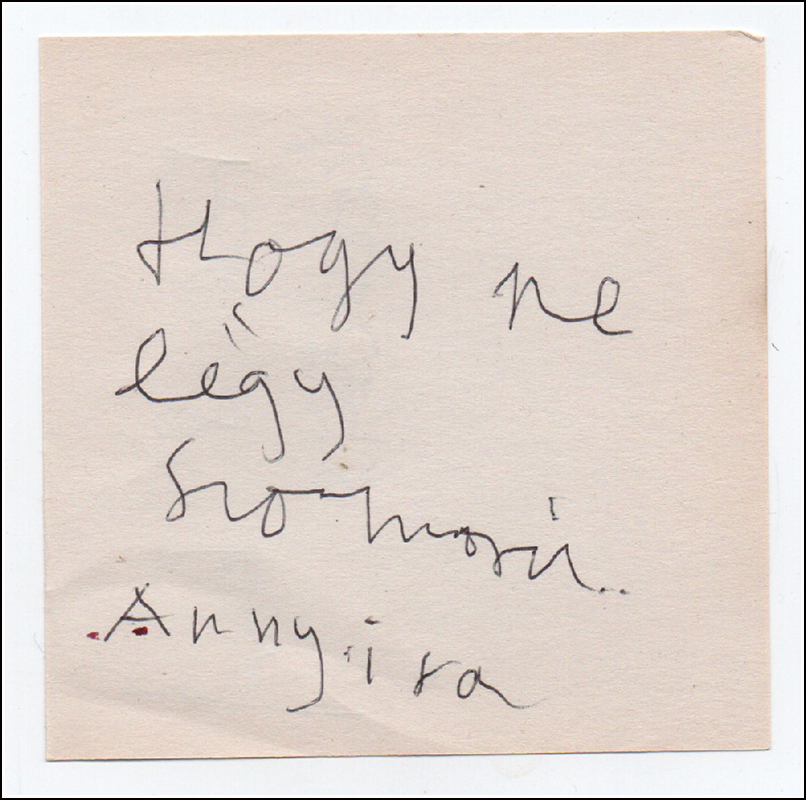 Hogy ne
légy
Szomorú..
Annyira